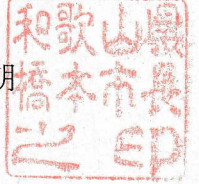 明
和歌山縣
橋本市長
之印